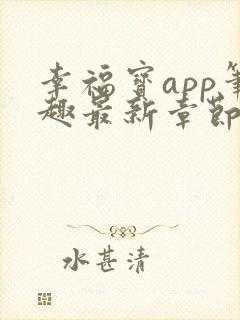 幸福宝app笔
趣最新章節
水甚清